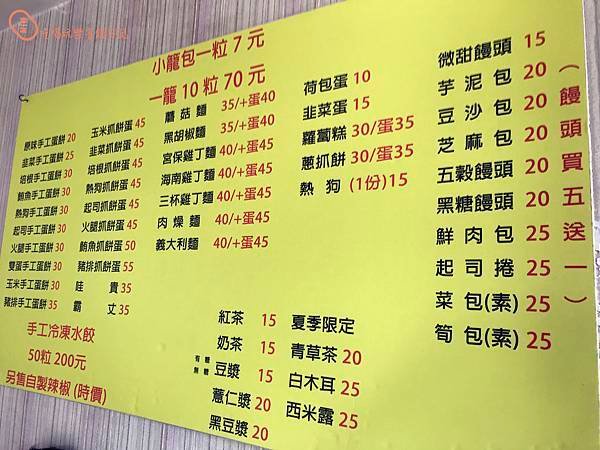 小籠包一粒7元
一籠10粒70元
原味手工蛋餅20
韭菜手工蛋餅25
培根手工蛋餅30
鮪魚手工蛋餅30
熱狗手工蛋餅30
起司手工蛋餅30
火腿手工蛋餅30
雙蛋手工蛋餅30
玉米手工蛋餅30
豬排手工蛋餅35
玉米抓餅蛋45
韭菜抓餅蛋45
培根抓餅蛋45
熱狗抓餅蛋45
起司抓餅蛋45
火腿抓餅蛋45
鮪魚抓餅蛋50
豬排抓餅蛋55
哇貴35
霸丈35
蘑菇麵 35/+蛋40
黑胡椒麵 35/+蛋40
宮保雞丁麵 40/+蛋45
海南雞丁麵 40/+蛋45
三杯雞丁麵 40/+蛋45
肉燥麵 40/+蛋45
義大利麵 40/+蛋45
荷包蛋 10
韭菜蛋 15
蘿蔔糕 30/蛋35
蔥抓餅 30/蛋35
熱狗 (1份)15
微甜饅頭 15
芋泥包 20
豆沙包 20
芝麻包 20
五穀饅頭 20
黑糖饅頭 20
鮮肉包 25
起司捲 25
菜包(素) 25
筍包(素) 25
(饅頭買五送一)
手工冷凍水餃
50粒 200元
另售自製辣椒(時價)
紅茶 15
奶茶 15
有糖 無糖 豆漿 15
薏仁漿 20
黑豆漿 20
夏季限定
青草茶 20
白木耳 25
西米露 25